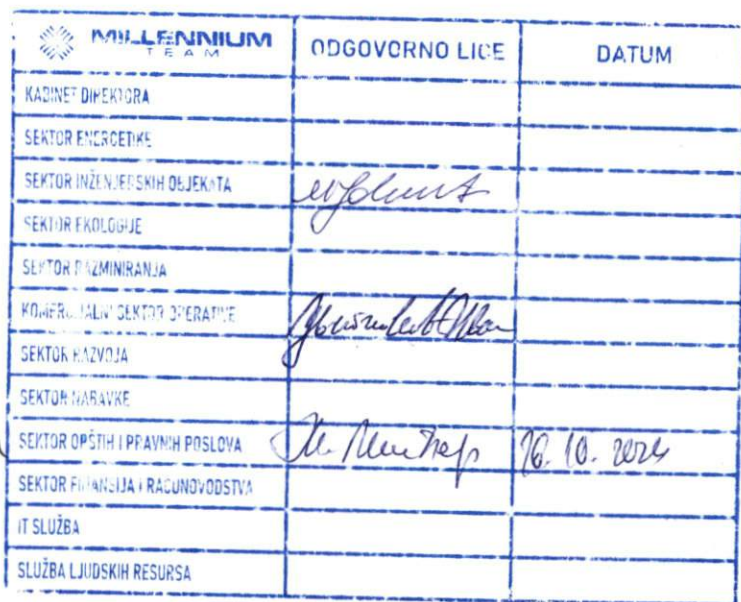 MILLENNIUM TEAM ODGOVORNO LICE DATUM
KABINET DIREKTORA
SEKTOR ENERGETIKE
SEKTOR INŽENJERSKIH OBJEKATA
SEKTOR EKOLOGIJE
SEKTOR RAZMINIRANJA
KOMERCIJALNI SEKTOR OPERATIVE
SEKTOR RAZVOJA
SEKTOR NABAVKE
SEKTOR OPŠTIH I PRAVNIH POSLOVA 10. 2024
SEKTOR FINANSIJA I RAČUNOVODSTVA
IT SLUŽBA
SLUŽBA LJUDSKIH RESURSA